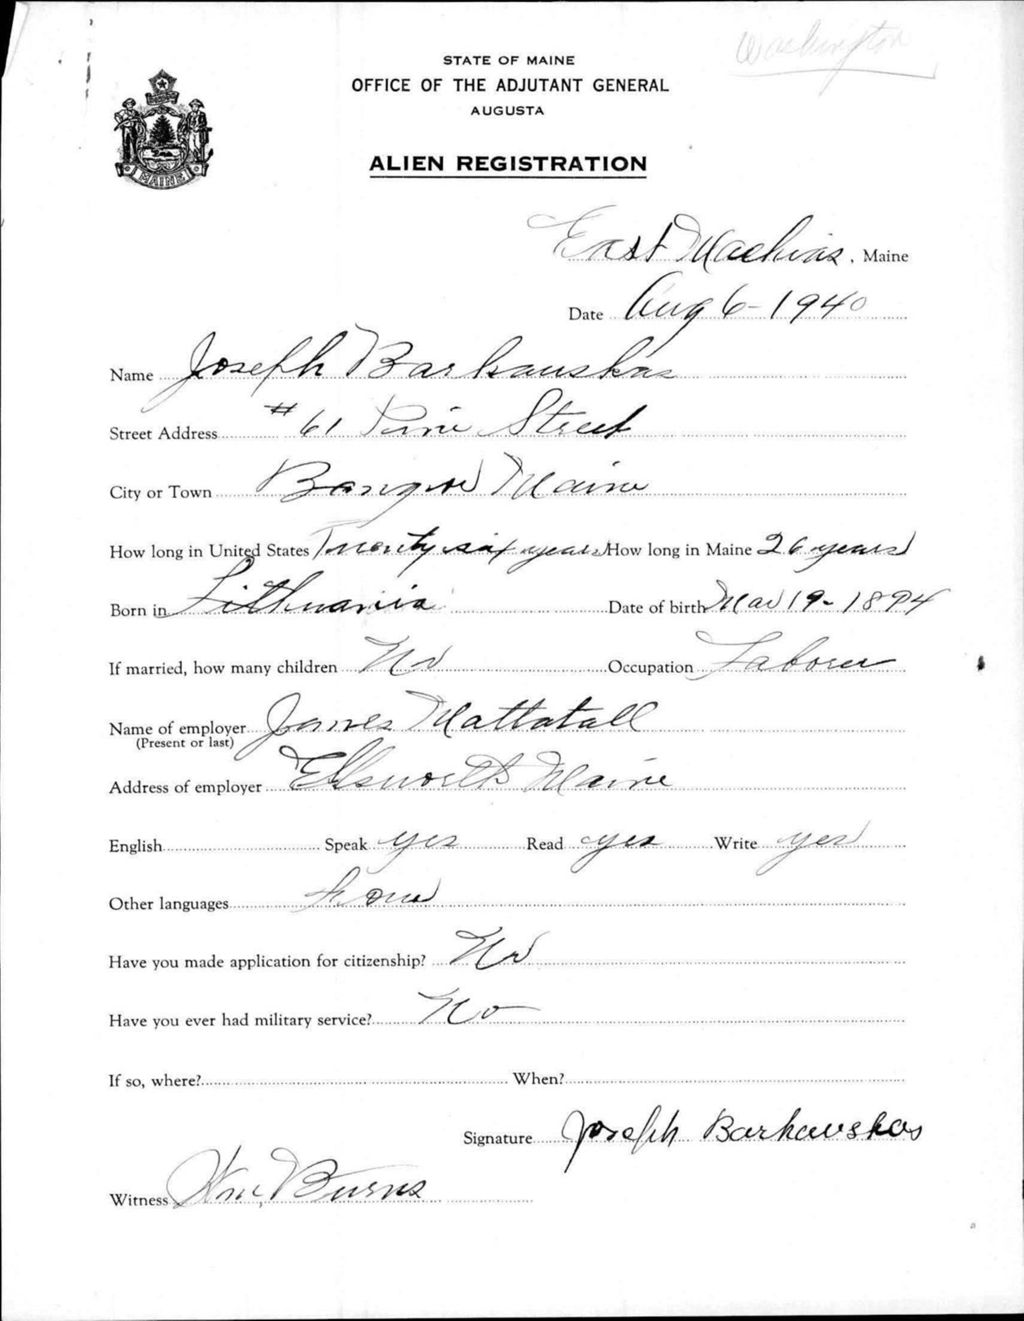 Washington
STATE OF MAINE
OFFICE OF THE ADJUTANT GENERAL
AUGUSTA
MAINE
ALIEN REGISTRATION
East Machias, Maine
Date Aug 6-1940
Name Joseph Barkauskas
Street Address #61 Pine Street
City or Town Bangor Maine
How long in United States Twenty six years How long in Maine 26 years
Born in Lithuania Date of birth Mar 19-1894
If married, how many children No Occupation Laborer
Name of employer James Mattatall
(Present or last)
Address of employer Ellsworth Maine
English Speak yes Read yes Write yes
Other languages Four
Have you made application for citizenship? No
Have you ever had military service? No
If so, where? When?
Signature Joseph Barkauskas
Witness Wm, Burns